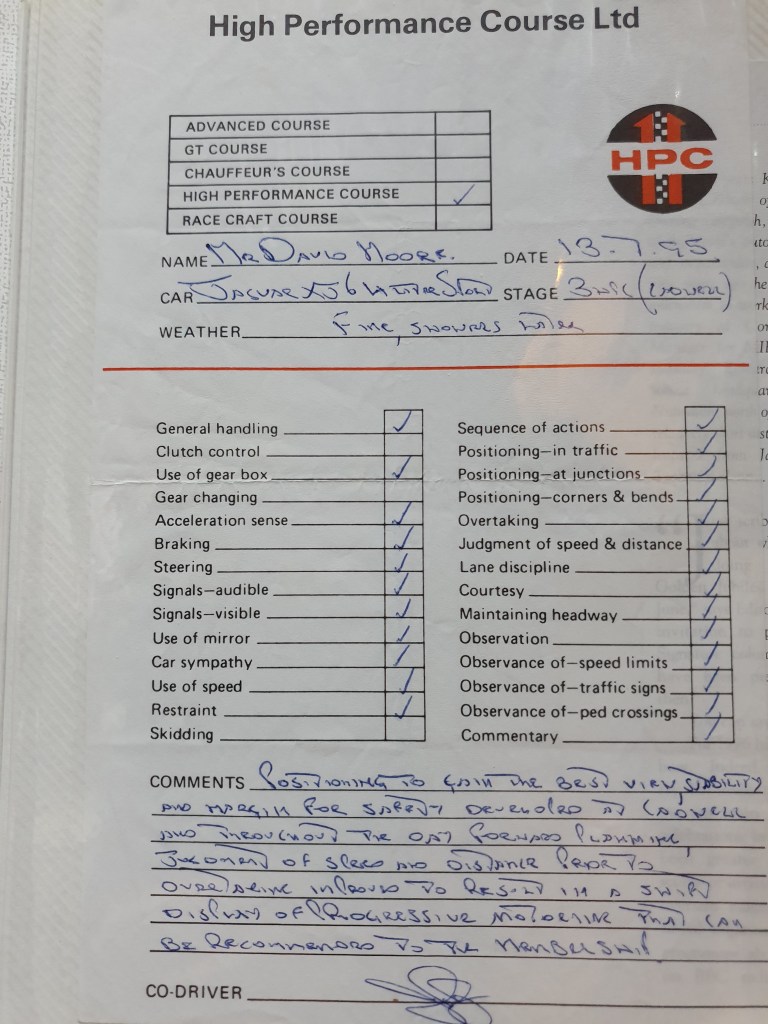 High Performance Course Ltd
ADVANCED COURSE
GT COURSE
CHAUFFEUR'S COURSE
HIGH PERFORMANCE COURSE ✓
RACE CRAFT COURSE
HPC
NAME MR DAVID MOORE. DATE 13.7.95
CAR JAGUAR XJ6 4 LITRE SPORT STAGE (CADWELL)
WEATHER FINE, SHOWERS LATER
General handling ✓
Clutch control
Use of gear box ✓
Gear changing
Acceleration sense ✓
Braking ✓
Steering ✓
Signals—audible ✓
Signals—visible ✓
Use of mirror ✓
Car sympathy ✓
Use of speed ✓
Restraint ✓
Skidding
Sequence of actions ✓
Positioning—in traffic ✓
Positioning—at junctions ✓
Positioning—corners & bends ✓
Overtaking ✓
Judgment of speed & distance ✓
Lane discipline ✓
Courtesy ✓
Maintaining headway ✓
Observation ✓
Observance of—speed limits ✓
Observance of—traffic signs ✓
Observance of—ped crossings ✓
Commentary ✓
COMMENTS POSITIONING TO GAIN THE BEST VIEW, STABILITY
AND MARGIN FOR SAFETY DEVELOPED AT CADWELL
AND THROUGHOUT THE DAY FORWARD PLANNING,
JUDGMENT OF SPEED AND DISTANCE PRIOR TO
OVERTAKING IMPROVED TO RESULT IN A SWIFT
DISPLAY OF PROGRESSIVE MOTORING THAT CAN
BE RECOMMENDED TO THE MEMBERSHIP
CO-DRIVER